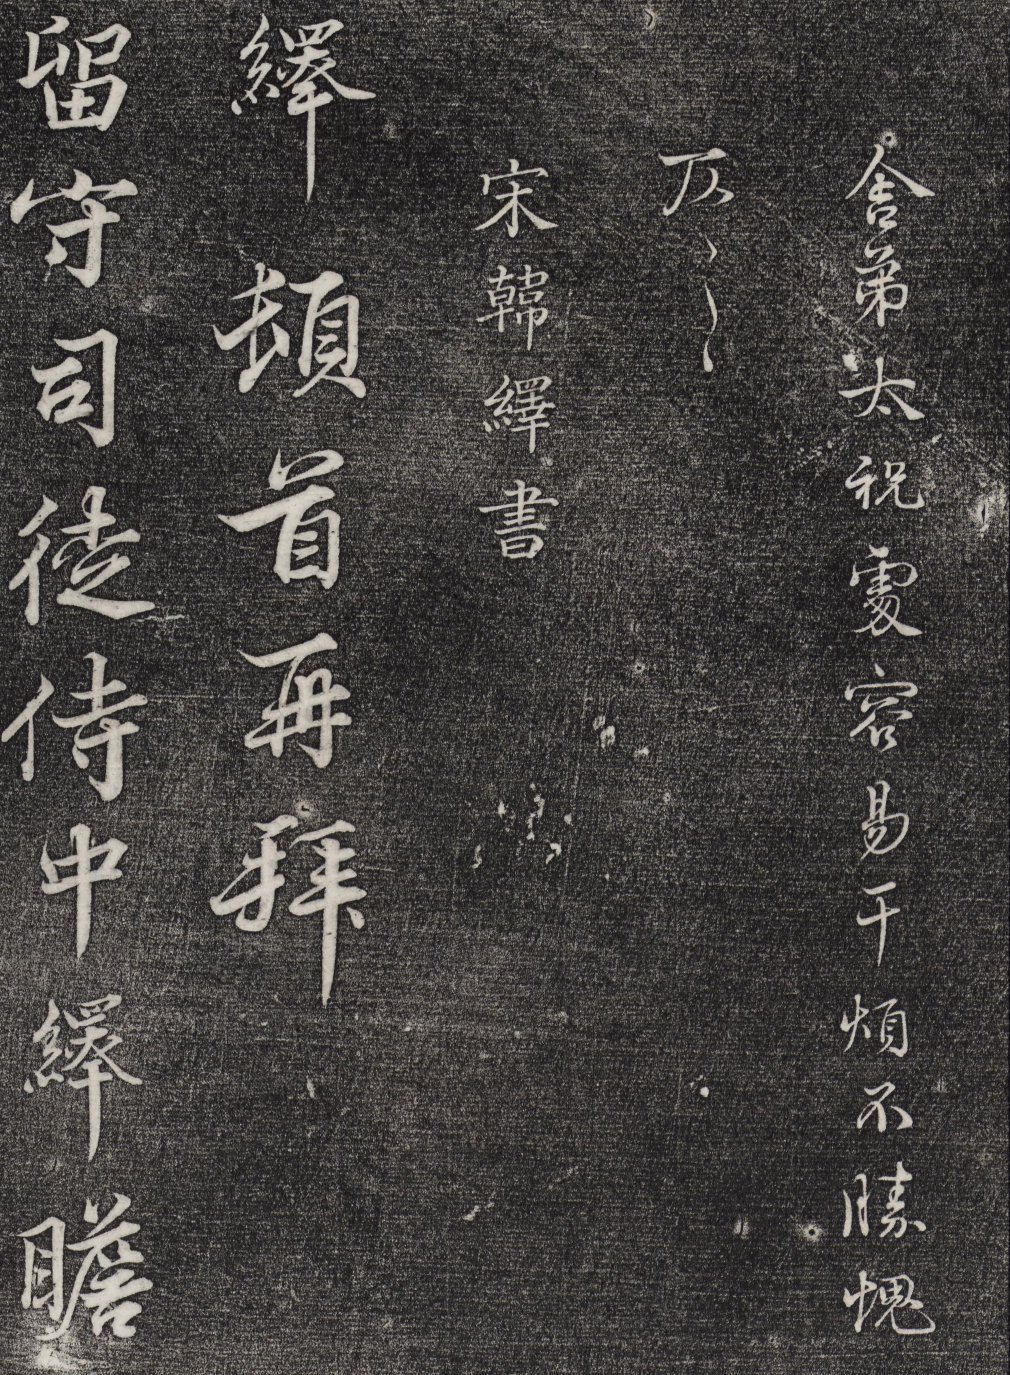 舍弟太祝處容易干煩不勝愧
仄〻〻
宋韓繹書
繹頓首再拜
留守司徒侍中繹瞻